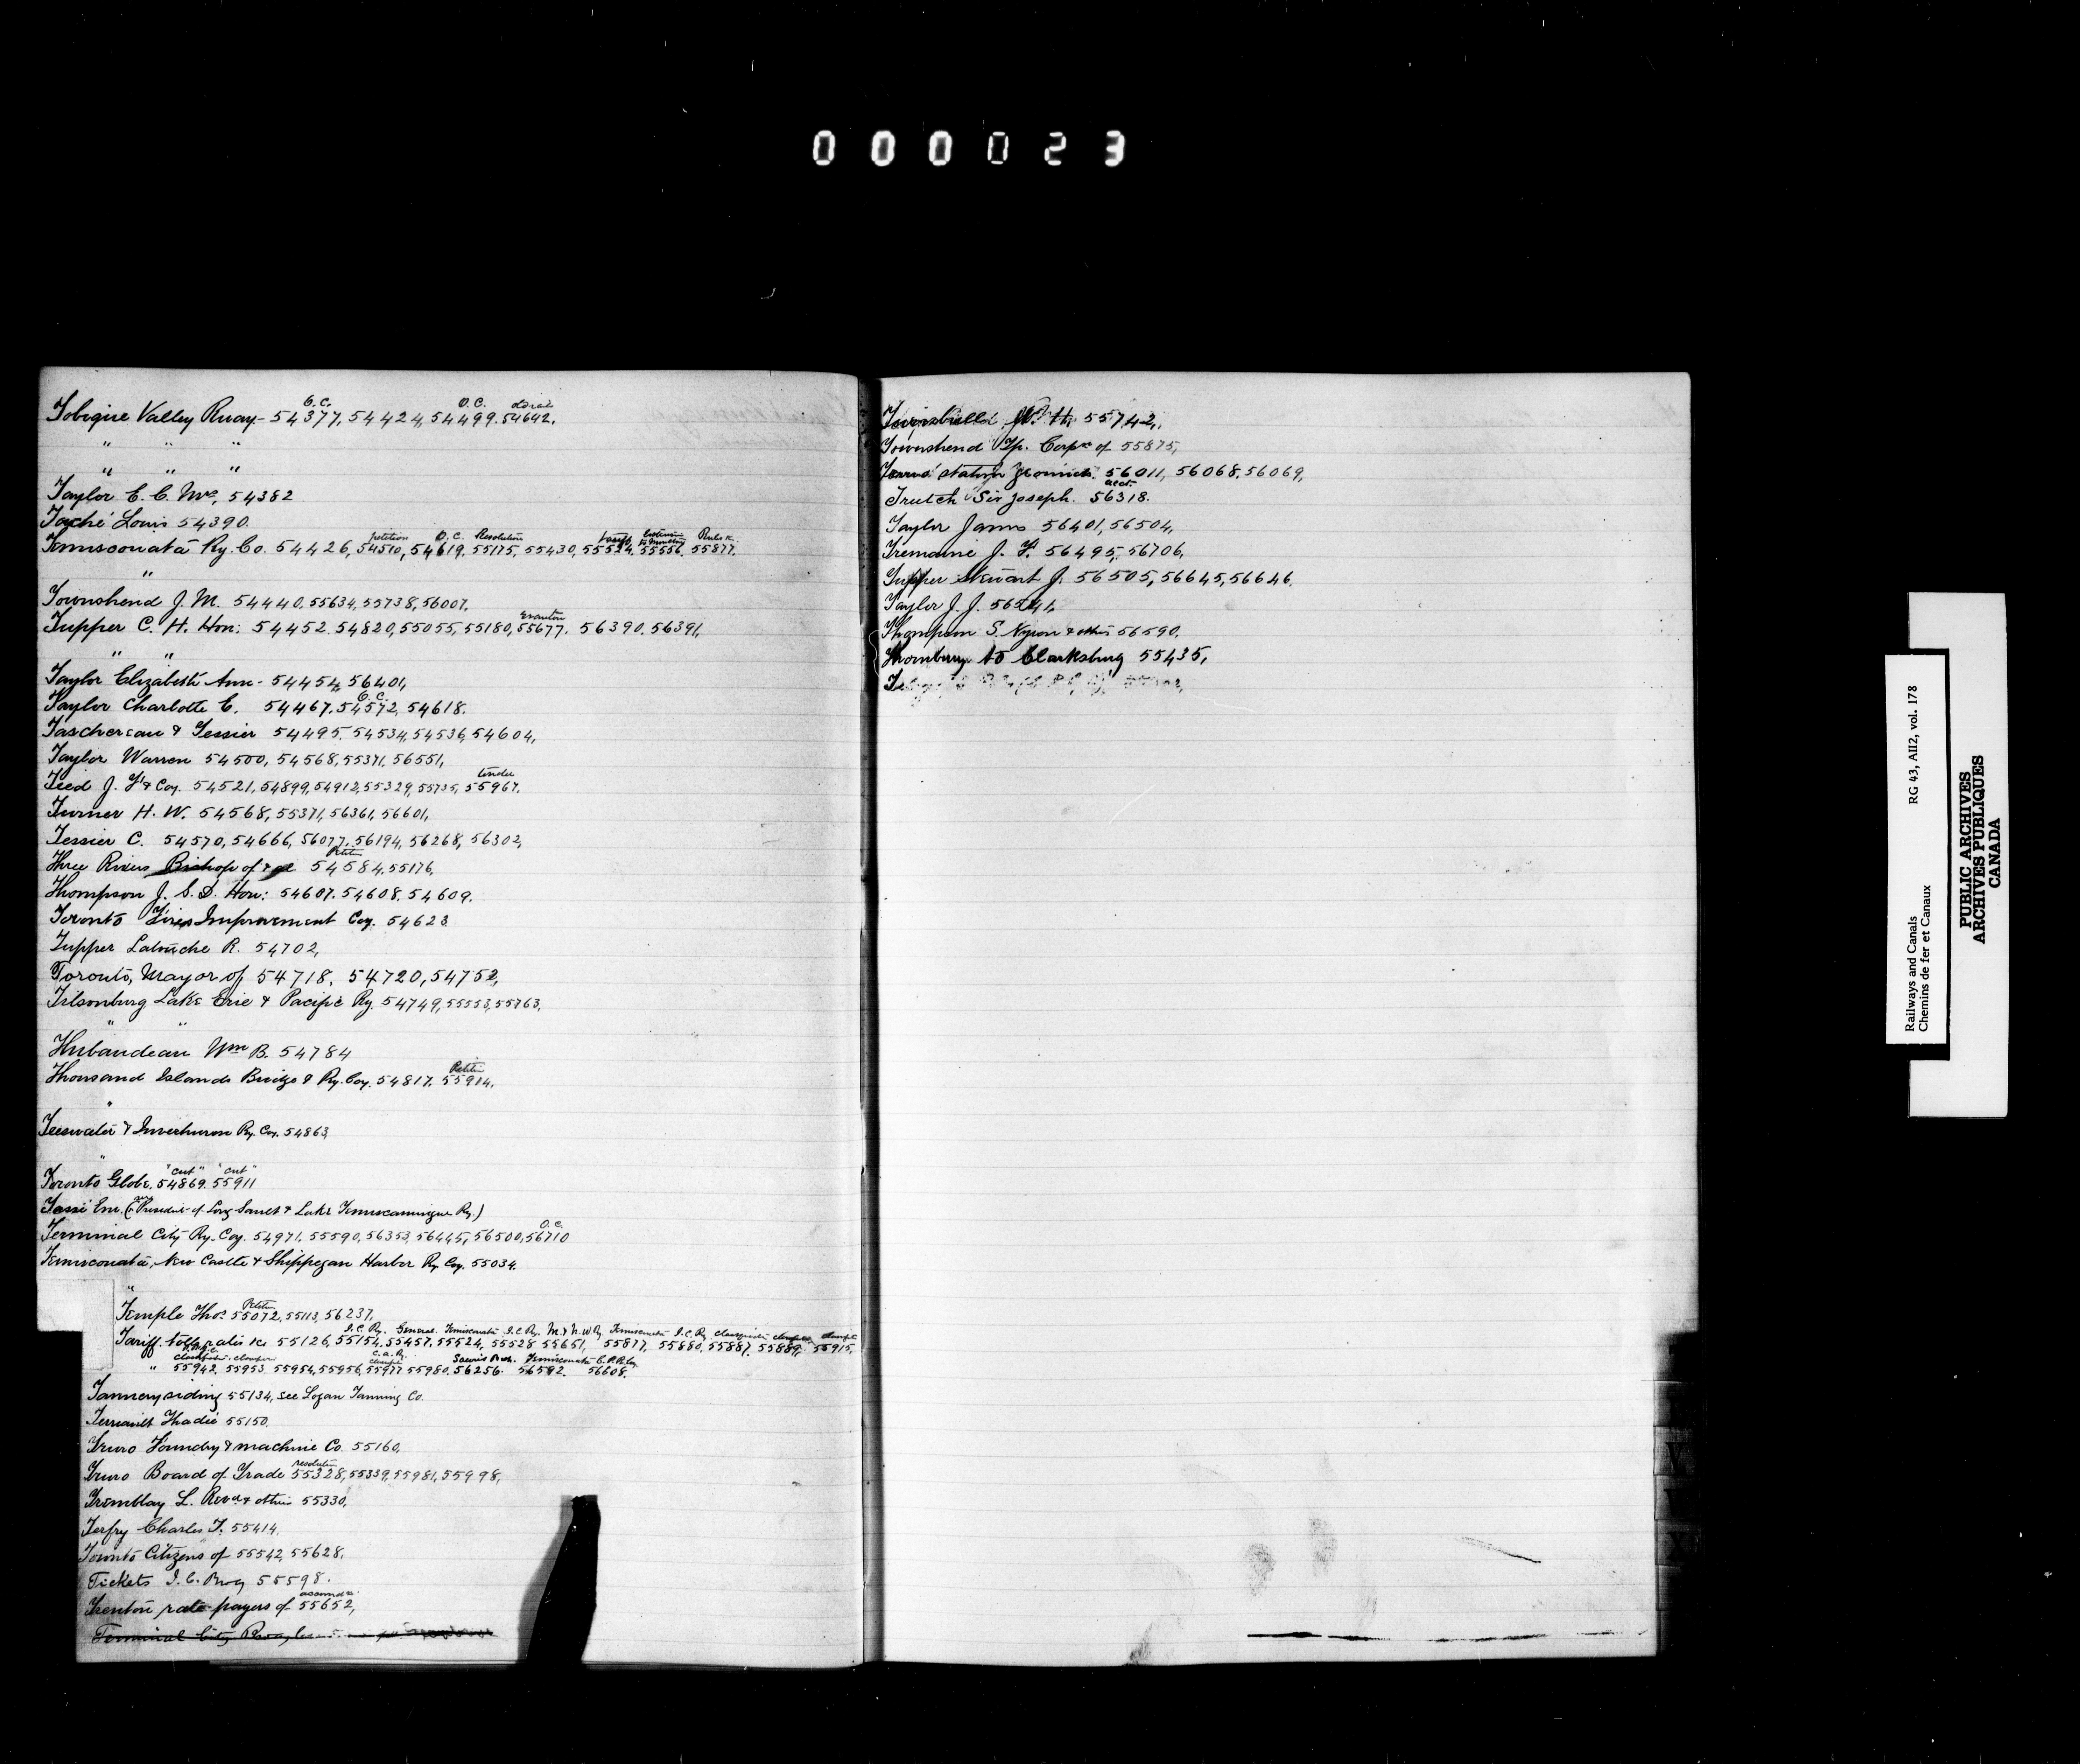 000023
O.C. O.C.
Tobique Valley Rway - 54377, 54424, 54499. 54642.
" " "
" " "
Taylor C. C. Mrs, 54382
Taché Louis 54390.
petition O.C. Resolution Tariff Rules &c.
Temiscouata Ry. Co. 54426, 54510, 54619, 55175, 55430, 55524. 55556. 55877.
"
Townshend J. M. 54440, 55634, 55738, 56007.
Tupper C. H. Hon: 54452. 54820, 55055, 55180, 55677. 56390. 56391,
" "
Taylor Elizabeth Ann - 54454, 56401,
O.C.
Taylor Charlotte C. 54467. 54572, 54618.
Taschereau & Tessier 54495. 54534, 54536, 54604,
Taylor Warren 54500, 54568, 55371, 56551,
tender
Teed J. F. & Coy. 54521, 54899, 54912, 55329, 55735, 55967.
Turner H. W. 54568, 55371, 56361, 56601,
Tessier C. 54570, 54666, 56077, 56194, 56268, 56302,
Petition
Three Rivers Bishop of & al 54584, 55176,
Thompson J. S. D. Hon: 54607. 54608. 54609.
Toronto Improvement Coy. 54623
Tupper Latouche R. 54702,
Toronto, Mayor of 54718, 54720, 54752,
Tilsonburg Lake Erie & Pacific Ry. 54749, 55553, 55763,
" "
Thibaudeau Wm B. 54784
Petition
Thousand Islands Bridge & Ry. Coy. 54817. 55914.
"
Teeswater & Inverhuron Ry. Coy. 54863,
"
"cut" "cut"
Toronto Globe, 54869. 55911
Tassé Em. (President of Long Sault & Lake Temiscamingue Ry.)
O.C.
Terminal City Ry. Coy. 54971, 55590, 56353, 56445, 56500, 56710
Temiscouata, New Castle & Shippegan Harbor Ry Coy. 55034.
"
Petition
Temple Thos. 55072, 55113, 56237,
I.C. Ry. General Temiscouata I.C. Ry. M. & N.W. Ry. Temiscouata I.C. Ry
Tariff. tolls rates &c 55126, 55154, 55457, 55524, 55528 55651, 55877, 55880, 55887. 55889, 55915,
C.A. Ry. Temiscouata
" 55942. 55953. 55954, 55956, 55977 55980. 56256. 56592. 56608.
Tannery siding 55134, see Logan Tanning Co.
Terriault Thadée 55150.
Truro Foundry & machine Co. 55160,
resolution
Truro Board of Trade 55328, 55339, 55981, 55998,
Tremblay L. Revd & others 55330,
Terfry Charles T. 55414,
Toronto Citizens of 55542, 55628,
Tickets I. C. Rwy 55598.
Trenton rate-payers of 55652,
Terminal City
Turnbull W. H. 55742,
Townshend Tp. Corpn of 55875,
station 56011, 56068, 56069,
acct.
Trutch Sir Joseph. 56318.
Taylor James 56401, 56504,
Tremaine J. F. 56495, 56706,
Tupper Stewart J. 56505, 56645, 56646.
Taylor J. J. 56541,
Thompson S. Nyron & others 56590.
Thornbury to Clarksburg 55435,
Railways and Canals RG 43, AII2, vol. 178
Chemins de fer et Canaux
PUBLIC ARCHIVES
ARCHIVES PUBLIQUES
CANADA